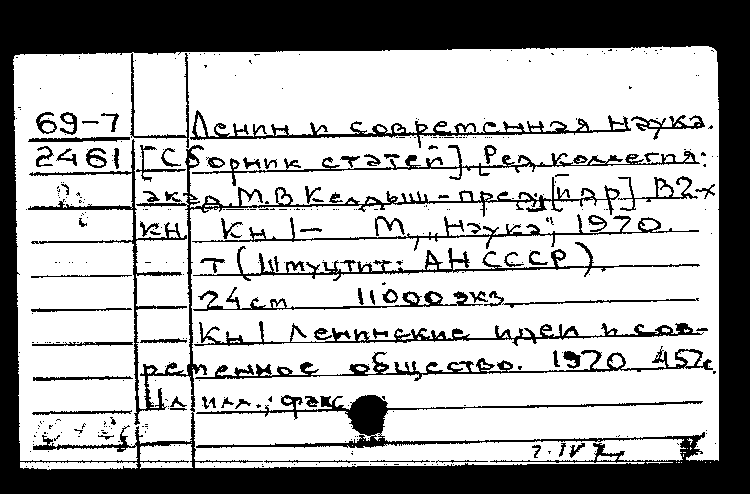 69-7 Ленин и современная наука.
2461 [Сборник статей]. Ред. коллегия:
акад. М.В. Келдыш - пред. [и др]. В 2-х
кн. Кн. 1 - М., "Наука", 1970.
т (Шт уц тит: АН СССР).
24 ст. 11000 экз.
Кн 1 Ленинские идеи и сов-
ременное общество. 1970. 457с.
1 л илл.; факс